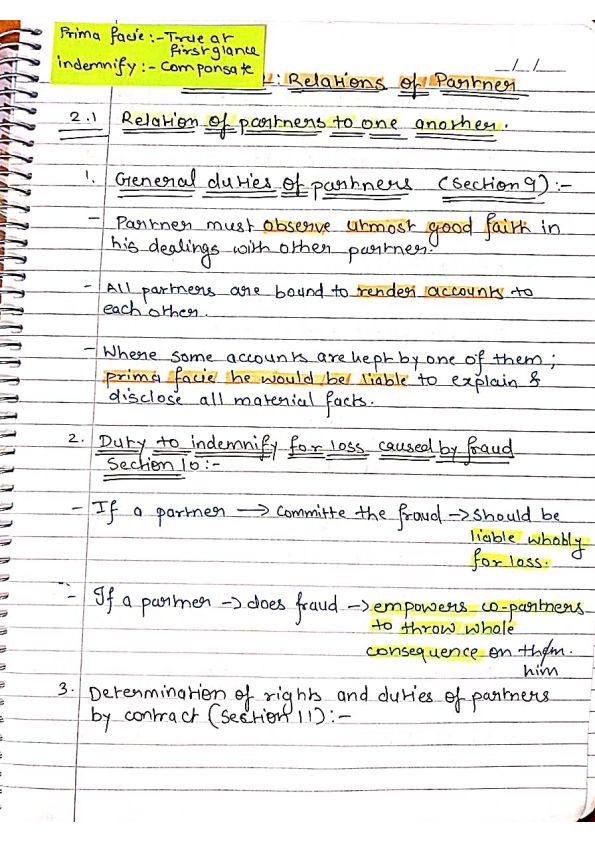 Prima facie :- True at
first glance
indemnify :- Componsate
_/_/_
: Relations of Partner
2.1 Relation of partners to one another.
1. General duties of partners (Section 9) :-
- Partner must observe utmost good faith in
his dealings with other partner.
- All partners are bound to render accounts to
each other.
- Where some accounts are kept by one of them ;
prima facie he would be liable to explain &
disclose all material facts.
2. Duty to indemnify for loss caused by fraud
Section 10 :-
- If a partner → committe the fraud → should be
liable whobly
for loss.
- If a partner → does fraud → empowers co-partners
to throw whole
consequence on them.
him
3. Determination of rights and duties of partners
by contract (Section 11) :-